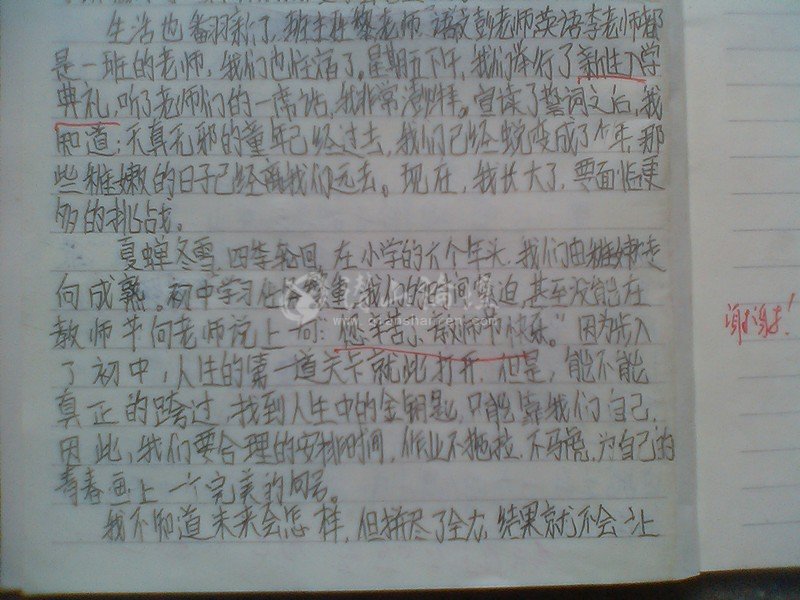 生活也翻新了，班主任黎老师、语文彭老师、英语李老师都
是一班的老师，我们也忙活了。星期五下午，我们举行了新生入学
典礼，听了老师们的一席话，我非常澎湃。宣读了誓词之后，我
知道：天真无邪的童年已经过去，我们已经蜕变成了少年，那
些稚嫩的日子已经离我们远去。现在，我长大了，要面临更
多的挑战。
夏蝉冬雪，四季轮回，在小学的六个年头，我们由稚嫩走
向成熟。初中学习任务繁重，我们的时间紧迫，甚至没能在
教师节向老师说上一句：“您辛苦了，教师节快乐。”因为步入
了初中，人生的第一道关卡就此打开，但是，能不能
真正的跨过，找到人生中的金钥匙，只能靠我们自己，
因此，我们要合理的安排时间，作业不拖拉，不马虎，为自己的
青春画上一个完美的句号。
我不知道未来会怎样，但拼尽了全力，结果就不会让
谢谢！